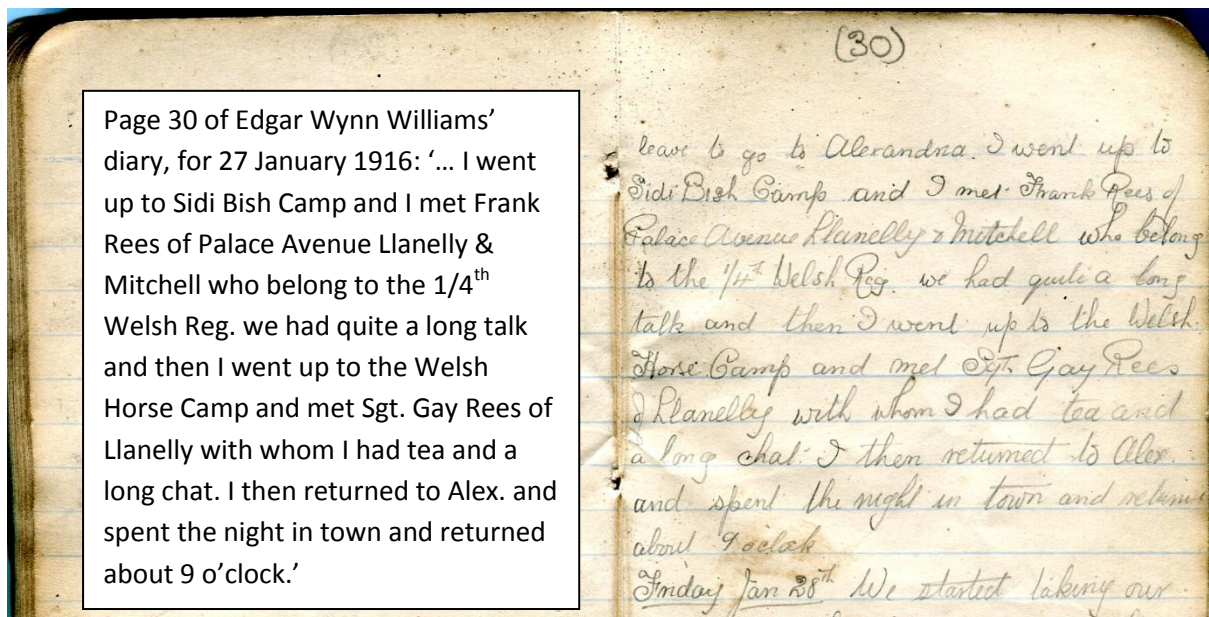 Page 30 of Edgar Wynn Williams’
diary, for 27 January 1916: ‘… I went
up to Sidi Bish Camp and I met Frank
Rees of Palace Avenue Llanelly &
Mitchell who belong to the 1/4th
Welsh Reg. we had quite a long talk
and then I went up to the Welsh
Horse Camp and met Sgt. Gay Rees of
Llanelly with whom I had tea and a
long chat. I then returned to Alex. and
spent the night in town and returned
about 9 o’clock.’
(30)
leave to go to Alexandria. I went up to
Sidi Bish Camp and I met Frank Rees of
Palace Avenue Llanelly & Mitchell who belong
to the 1/4th Welsh Reg. we had quite a long
talk and then I went up to the Welsh
Horse Camp and met Sgt. Gay Rees
of Llanelly with whom I had tea and
a long chat. I then returned to Alex.
and spent the night in town and
about 9 oclock
Friday Jan 28th We started taking our